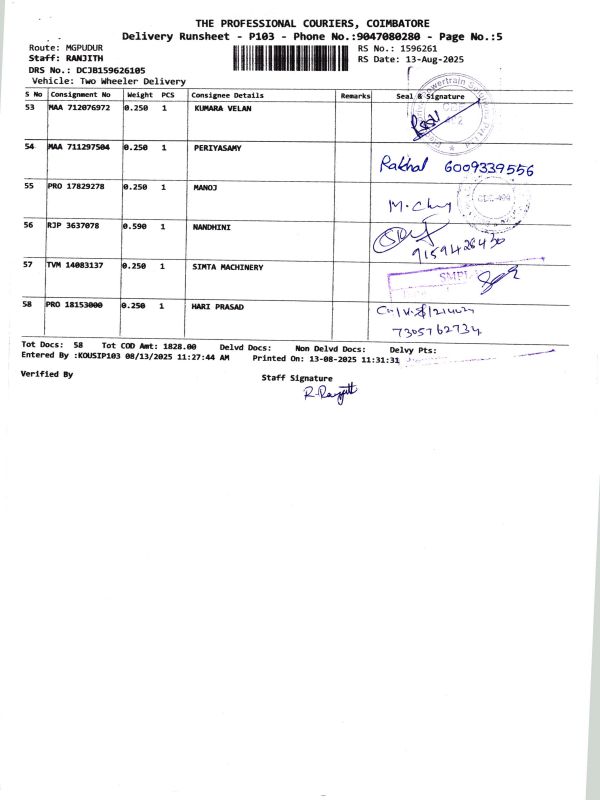 THE PROFESSIONAL COURIERS, COIMBATORE
Delivery Runsheet - P103 - Phone No.:9047080280 - Page No.:5
Route: MGPUDUR
RS No.: 1596261
Staff: RANJITH
RS Date: 13-Aug-2025
DRS No.: DCJB159626105
Vehicle: Two Wheeler Delivery
S No Consignment No Weight PCS Consignee Details Remarks Seal & Signature
53 MAA 712076972 0.250 1 KUMARA VELAN
54 MAA 711297504 0.250 1 PERIYASAMY
Rakhal 6009339556
55 PRO 17829278 0.250 1 MANOJ
56 RJP 3637078 0.590 1 NANDHINI
9159426430
57 TVM 14083137 0.250 1 SIMTA MACHINERY
SMPL
58 PRO 18153000 0.250 1 HARI PRASAD
7305762734
Tot Docs: 58 Tot COD Amt: 1828.00 Delvd Docs: Non Delvd Docs: Delvy Pts:
Entered By :KOUSIP103 08/13/2025 11:27:44 AM Printed On: 13-08-2025 11:31:31
Verified By
Staff Signature